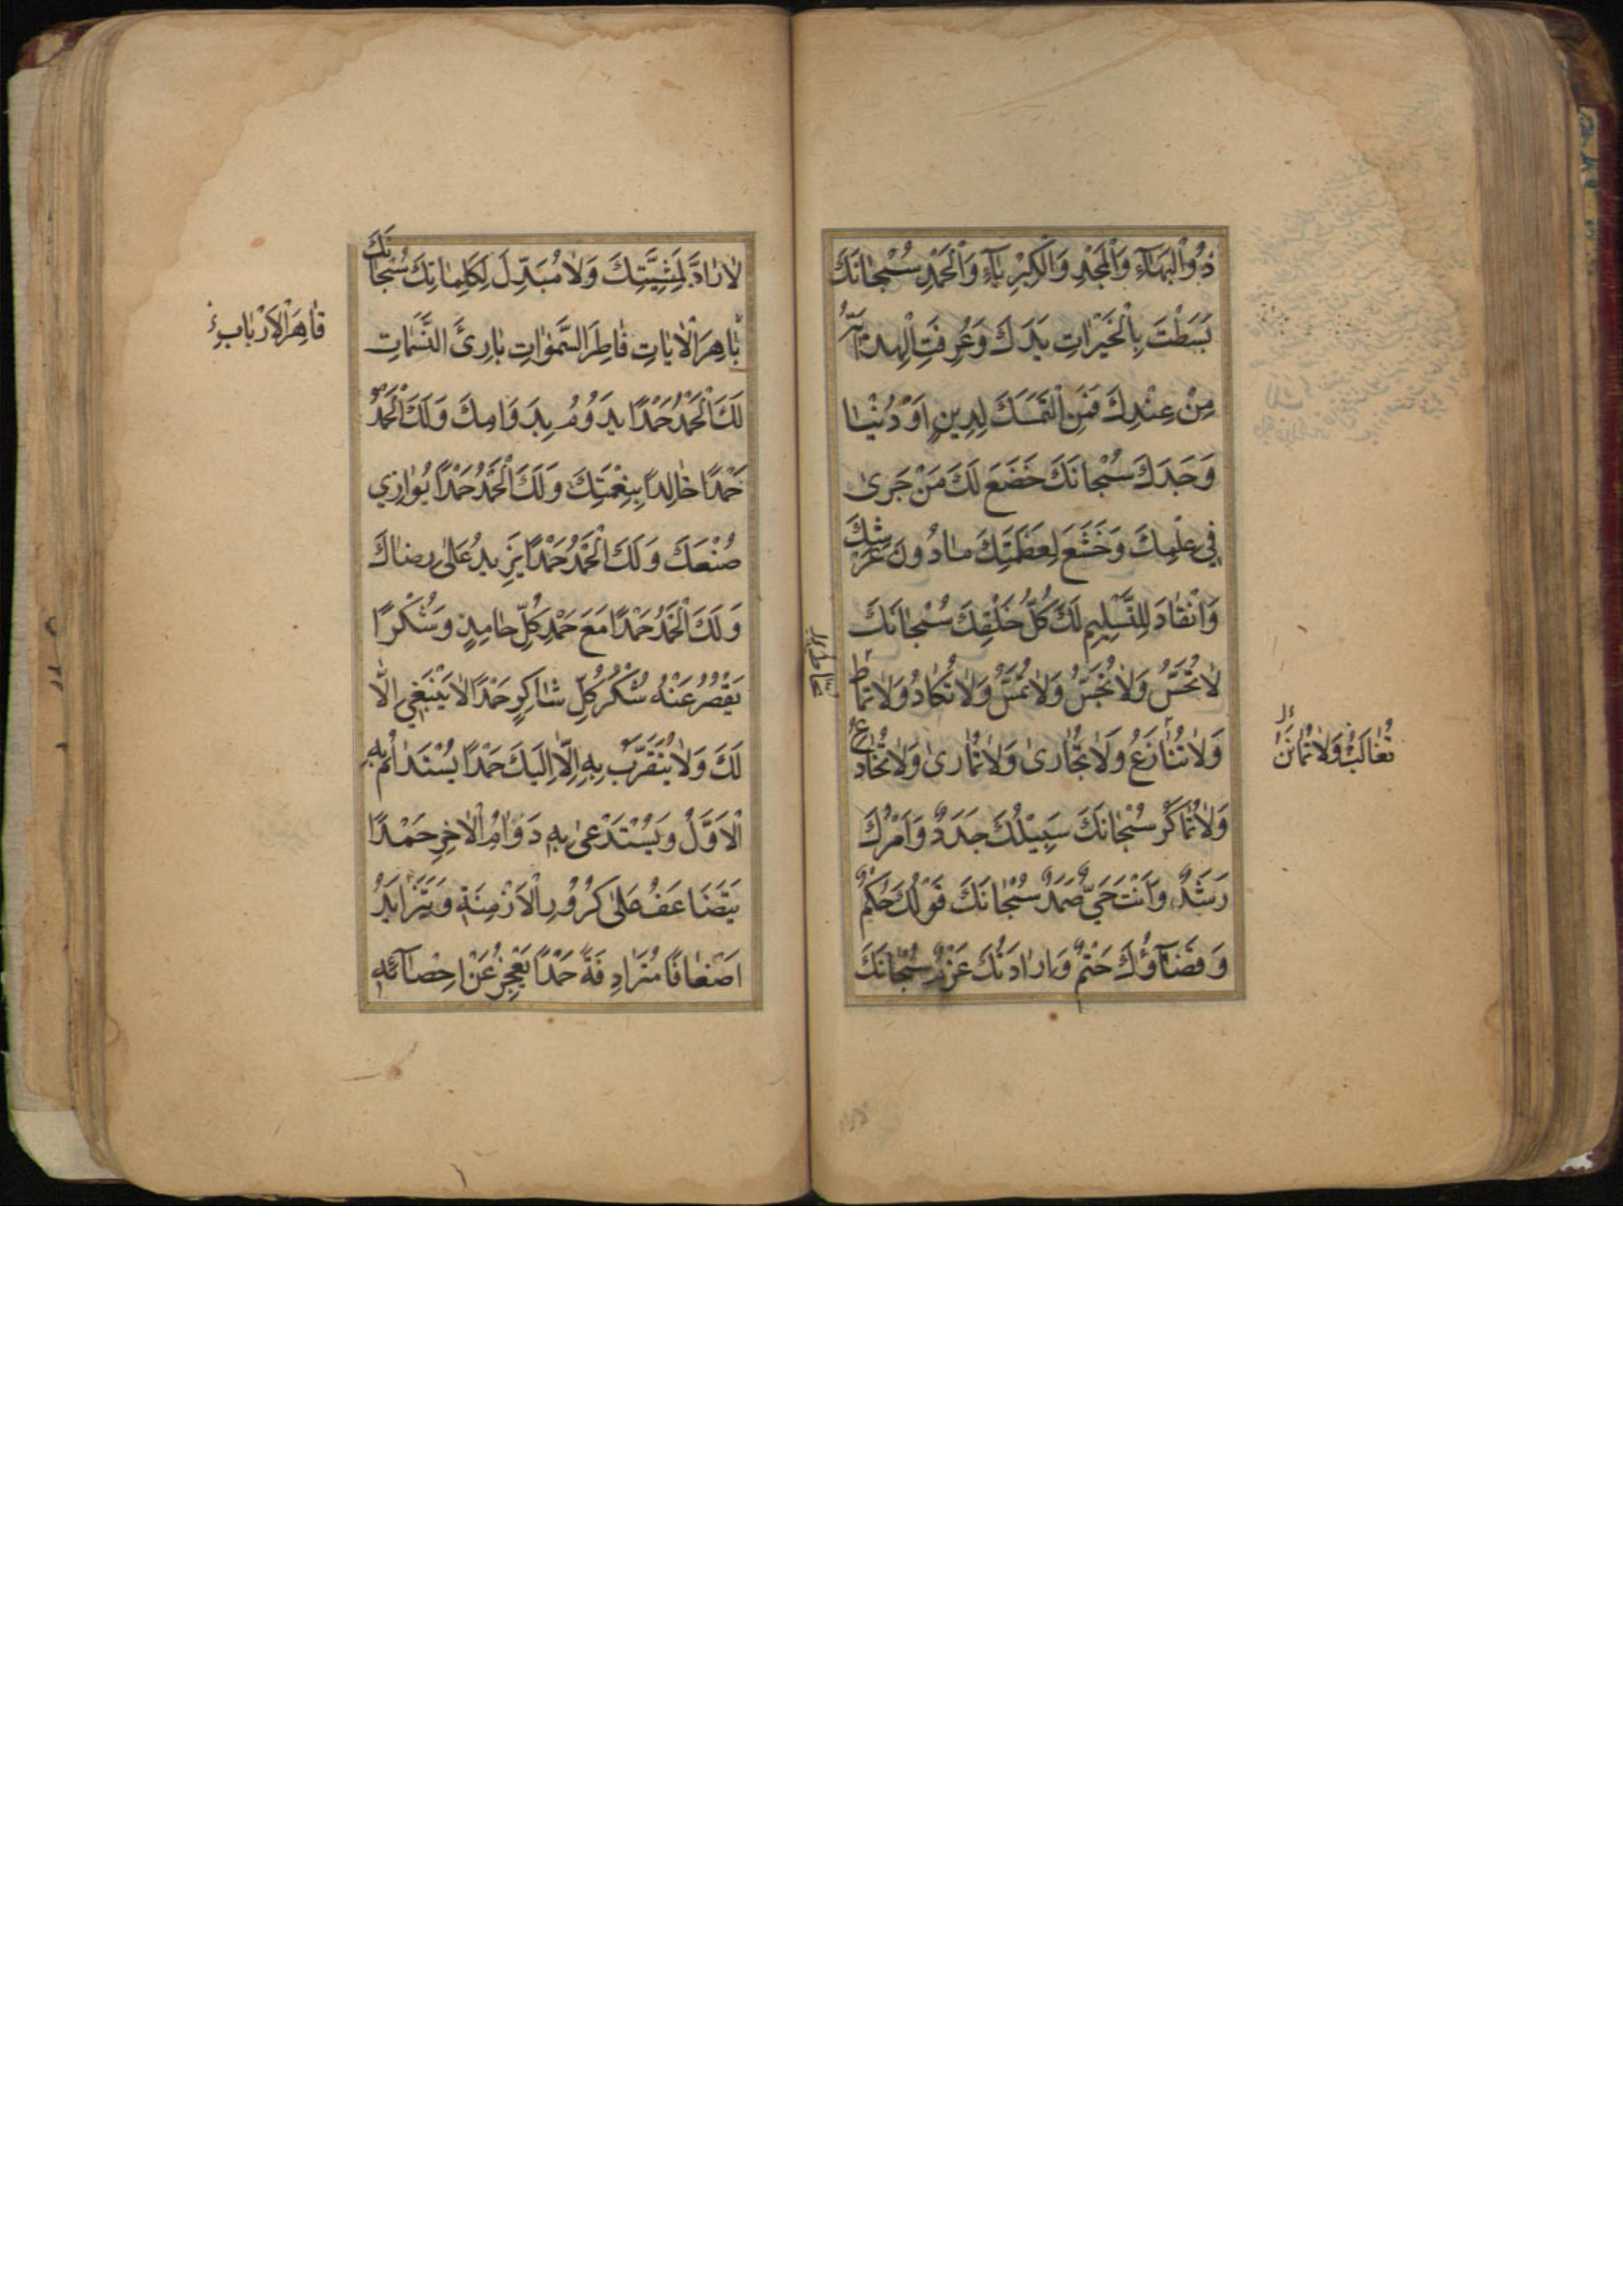 ذُو الْبَهَآءِ وَالْمَجْدِ وَالْكِبْرِيٰآءِ وَالْحَمْدِ سُبْحٰانَكَ
بَسَطْتَ بِالْخَيْرٰاتِ يَدَكَ وَعُرِفَتِ الْهِدٰايَةُ
مِنْ عِنْدِكَ فَمَنِ الْتَمَسَكَ لِدِينٍ اَوْ دُنْيٰا
وَجَدَكَ سُبْحٰانَكَ خَضَعَ لَكَ مَنْ جَرىٰ
فِي عِلْمِكَ وَخَشَعَ لِعَظَمَتِكَ مٰا دُونَ عَرْشِكَ
وَانْقٰادَ لِلتَّسْلِيمِ لَكَ كُلُّ خَلْقِكَ سُبْحٰانَكَ
لٰا تُحَسُّ وَلٰا تُجَسُّ وَلٰا تُمَسُّ وَلٰا تُكٰادُ وَلٰا تُمٰاطُ
وَلٰا تُنٰازَعُ وَلٰا تُجٰارىٰ وَلٰا تُمٰارىٰ وَلٰا تُخٰادَعُ
وَلٰا تُمٰاكَرُ سُبْحٰانَكَ سَبِيْلُكَ جَدَدٌ وَاَمْرُكَ
رَشَدٌ وَاَنْتَ حَيٌّ صَمَدٌ سُبْحٰانَكَ قَوْلُكَ حُكْمٌ
وَقَضَآؤُكَ حَتْمٌ وَاِرٰادَتُكَ عَزْمٌ سُبْحٰانَكَ
تُغٰالَبُ وَلٰا
لٰا رٰادَّ لِمَشِيَّتِكَ وَلٰا مُبَدِّلَ لِكَلِمٰاتِكَ سُبْحٰانَكَ
بٰاهِرَ الْاٰيٰاتِ فٰاطِرَ السَّمٰوٰاتِ بٰارِئَ النَّسَمٰاتِ
لَكَ الْحَمْدُ حَمْدًا يَدُوْمُ بِدَوَامِكَ وَلَكَ الْحَمْدُ
حَمْدًا خٰالِدًا بِنِعْمَتِكَ وَلَكَ الْحَمْدُ حَمْدًا يُوٰازِي
صُنْعَكَ وَلَكَ الْحَمْدُ حَمْدًا يَزِيدُ عَلىٰ رِضٰاكَ
وَلَكَ الْحَمْدُ حَمْدًا مَعَ حَمْدِ كُلِّ حٰامِدٍ وَشُكْرًا
يَقْصُرُ عَنْهُ شُكْرُ كُلِّ شٰاكِرٍ حَمْدًا لٰا يَنْبَغِي اِلّٰا
لَكَ وَلٰا يُتَقَرَّبُ بِهِ اِلّٰا اِلَيْكَ حَمْدًا يُسْتَدٰامُ بِهِ
الْاَوَّلُ وَيُسْتَدْعىٰ بِهِ دَوٰامُ الْاٰخِرِ حَمْدًا
يَتَضَاعَفُ عَلىٰ كُرُوْرِ الْاَزْمِنَةِ وَيَتَزٰايَدُ
اَضْعٰافًا مُتَرٰادِفَةً حَمْدًا يَعْجِزُ عَنْ اِحْصٰآئِهِ
قٰاهِرَ الْاَرْبٰابِ